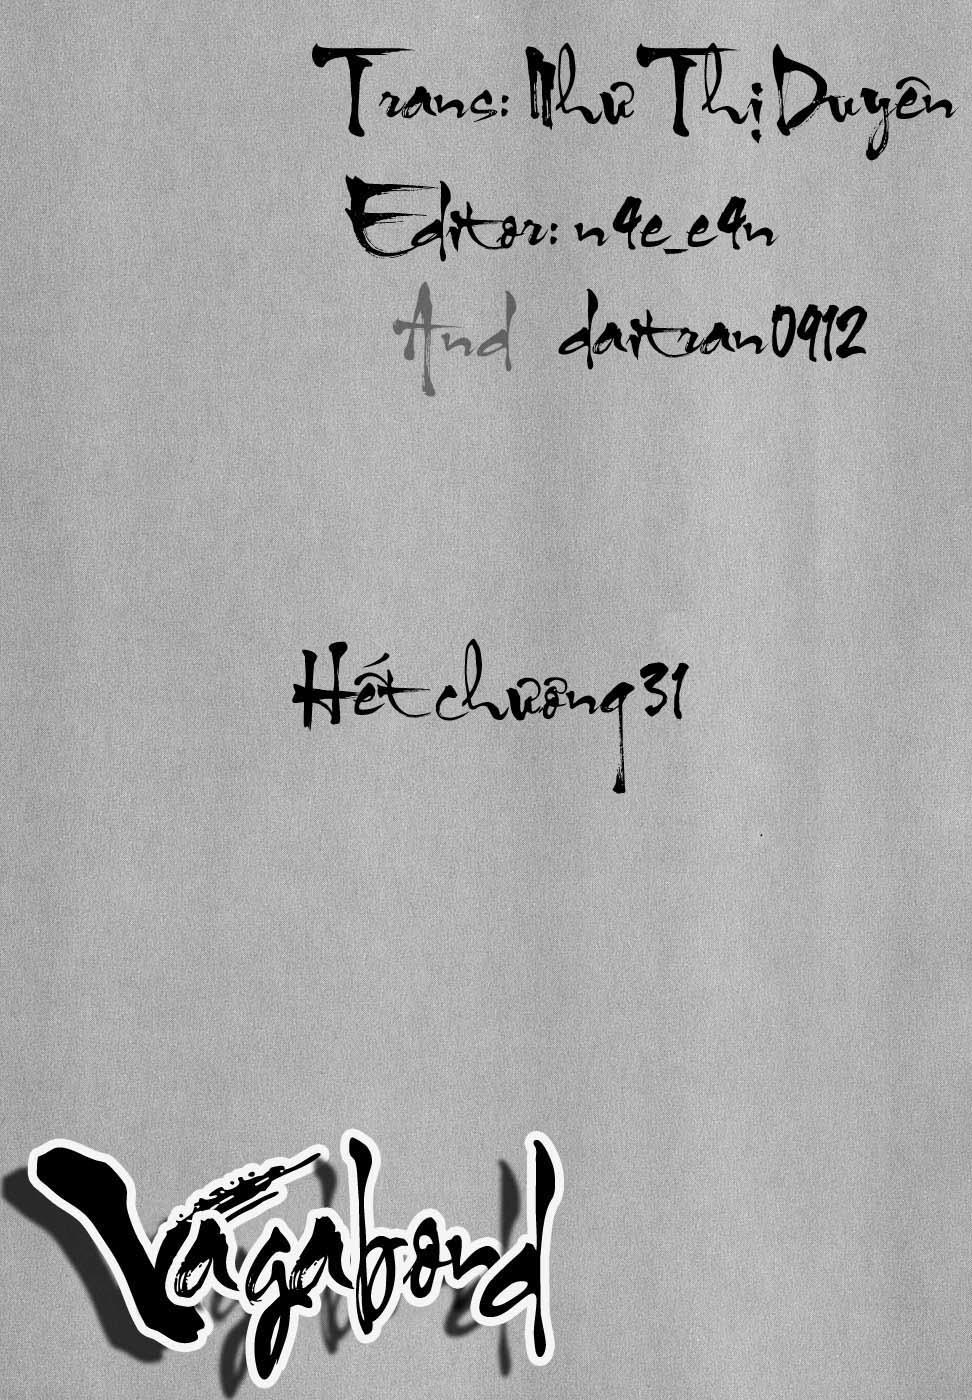 Trans: Như Thị Duyên
Editor: n4e_e4n
And daitran0912
Hết chương 31
Vagabond